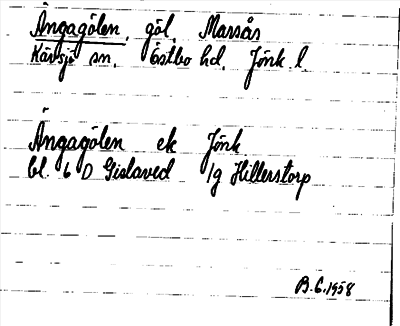 Ängagölen, göl, Marsås
Kävsjö sn. Östbo hd. Jönk. l.
Ängagölen ek Jönk
bl. 6 D Gislaved 1g Hillerstorp
B.G. 1958